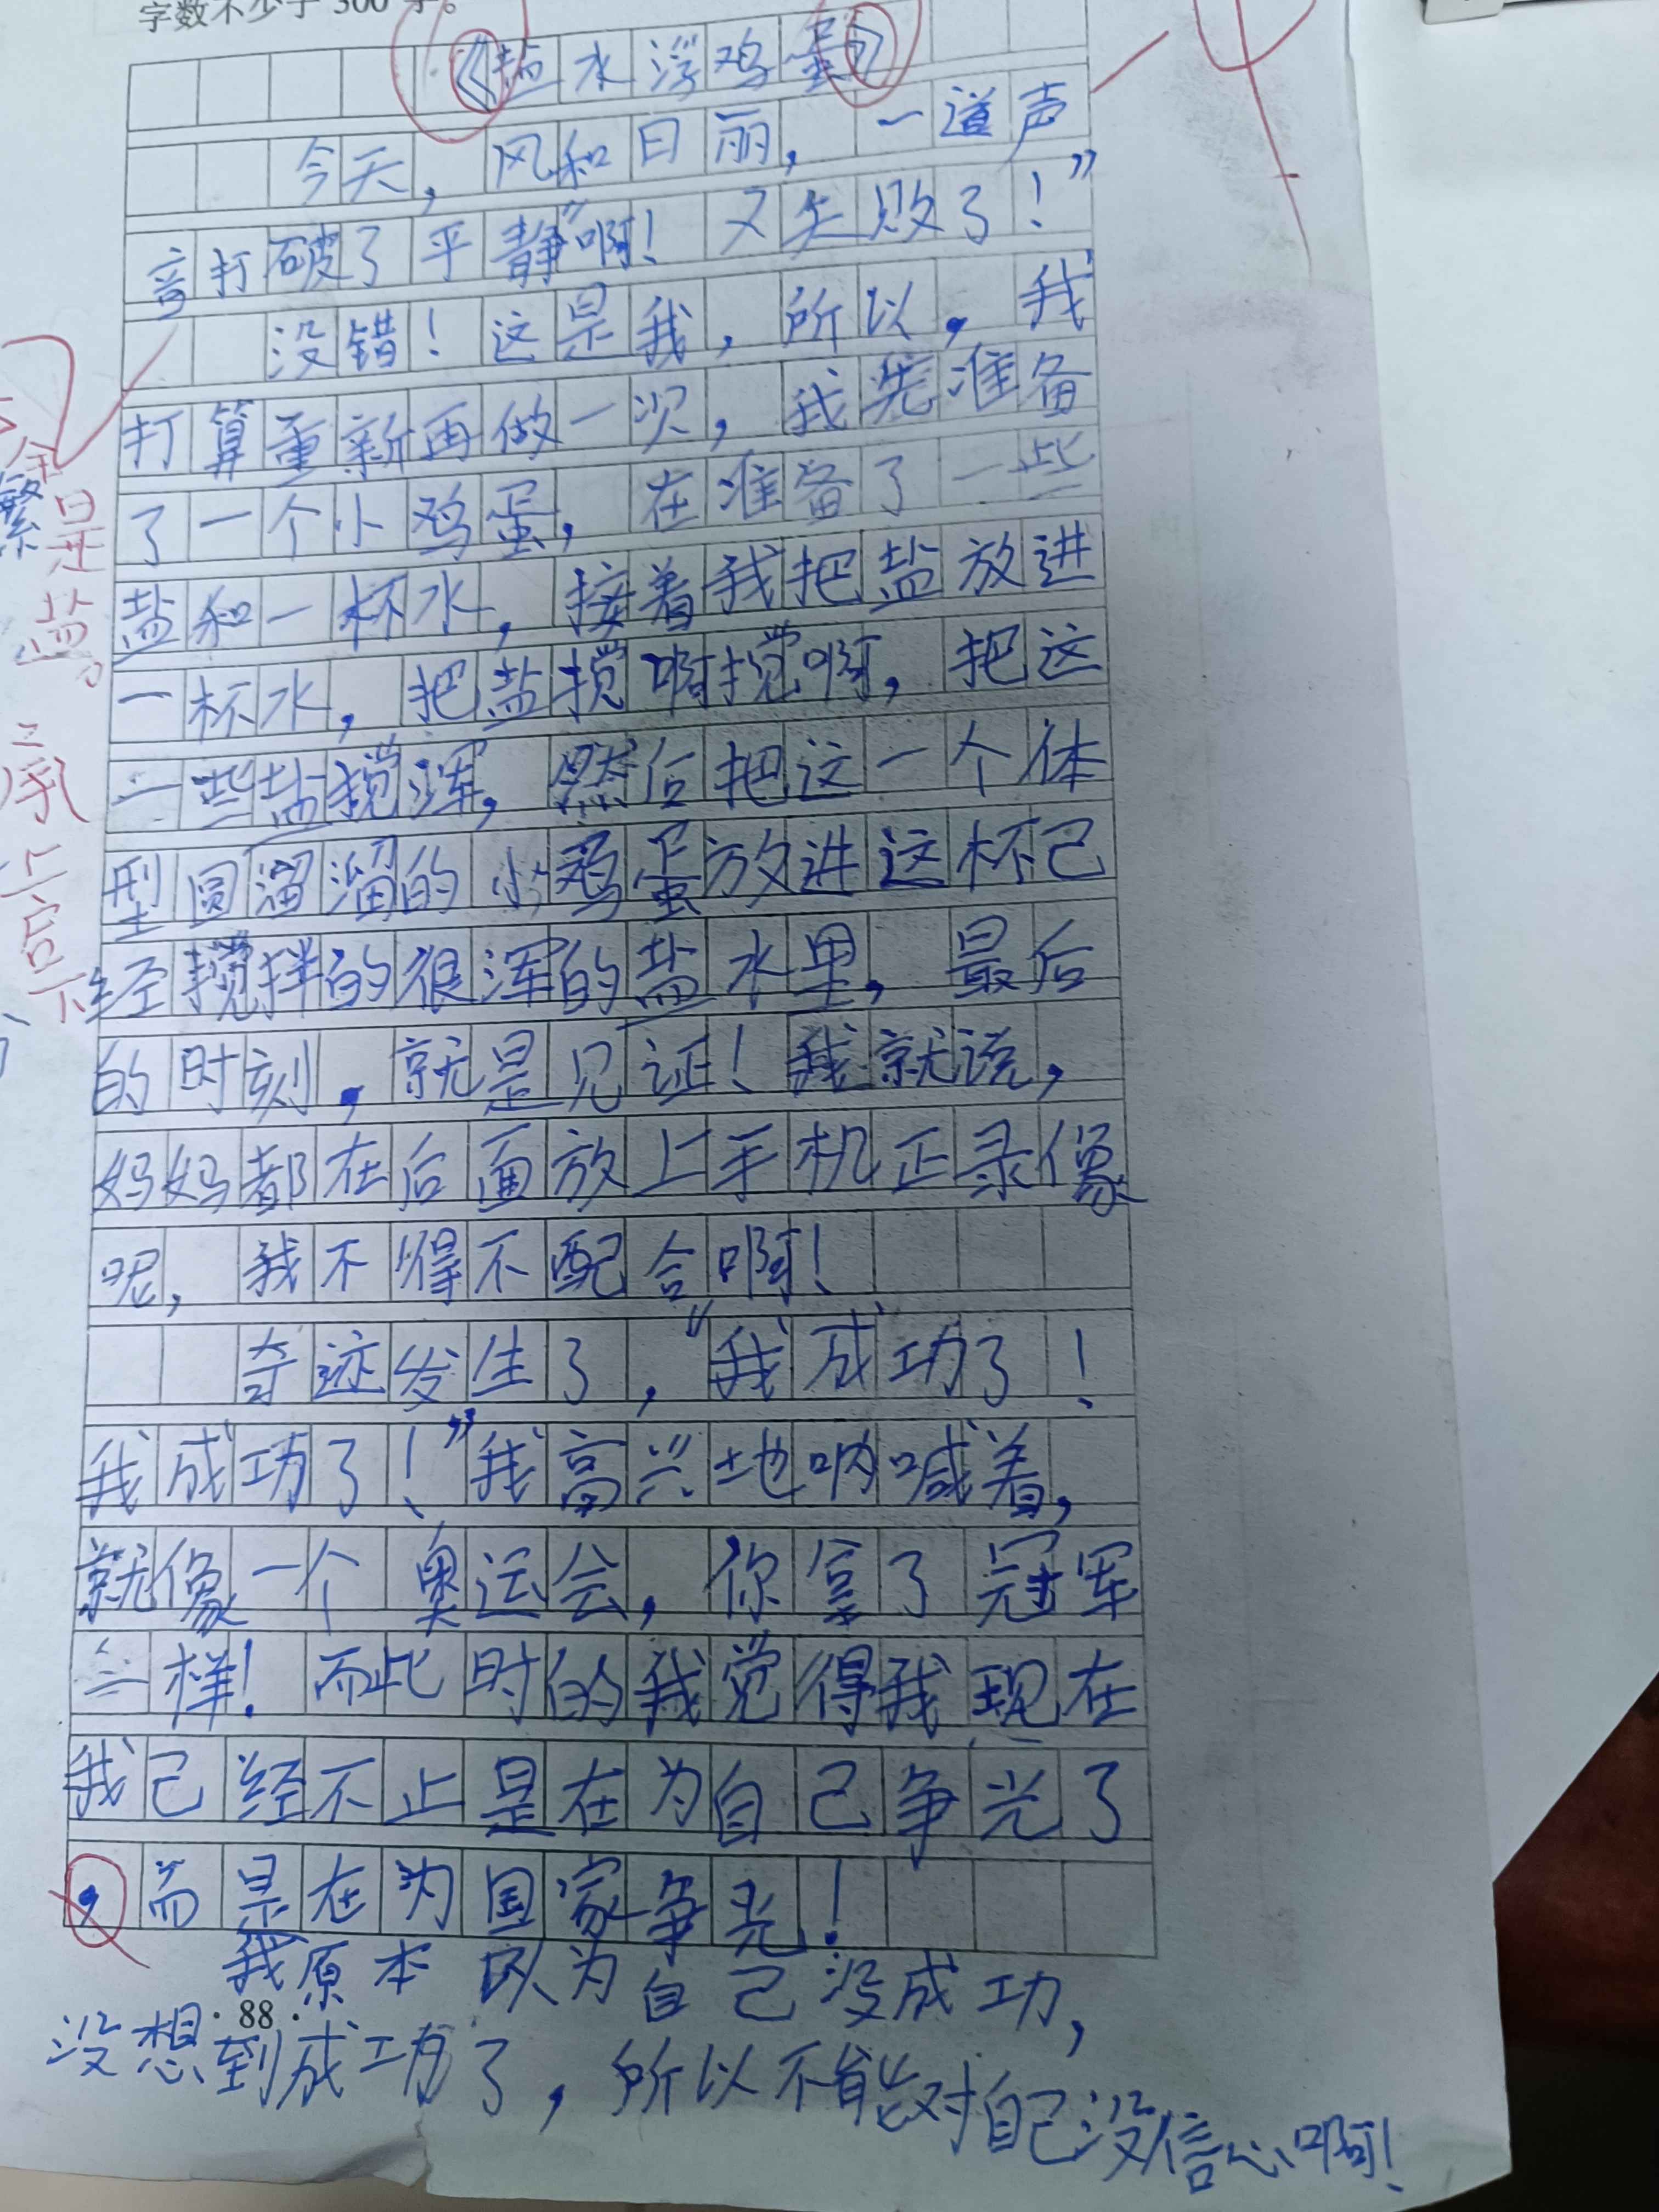 字数不少于300字。
《盐水浮鸡蛋》
今天，风和日丽，一道声
音打破了平静“啊！又失败了！”
没错！这是我，所以，我
打算重新再做一次，我先准备
了一个小鸡蛋，在准备了一些
盐和一杯水，接着我把盐放进
一杯水，把盐搅啊搅啊，把这
一些盐搅浑，然后把这一个体
型圆溜溜的小鸡蛋放进这杯已
经搅拌的很浑的盐水里，最后
的时刻，就是见证！我就说，
妈妈都在后面放上手机正录像
呢，我不得不配合啊！
奇迹发生了，“我成功了！
我成功了！”我高兴地呐喊着，
就像一个奥运会，你拿了冠军
一样！而此时的我觉得我现在
我已经不止是在为自己争光了
，而是在为国家争光！
我原本以为自己没成功，
·88·
没想到成功了，所以不能对自己没信心啊！
是